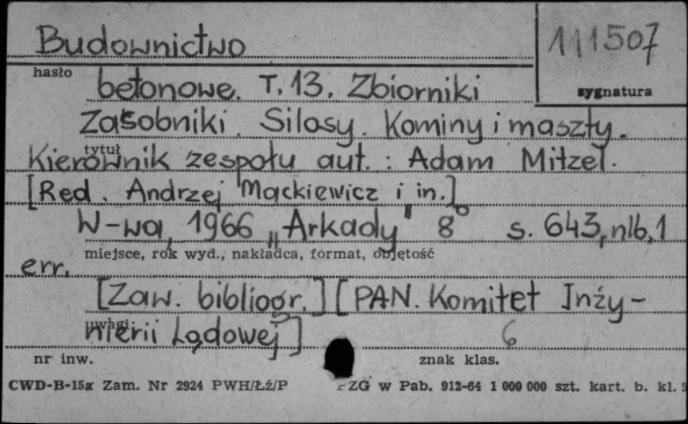 Budownictwo
111507
hasło
sygnatura
betonowe. T.13. Zbiorniki
Zasobniki. Silosy. Kominy i maszty.
tytuł
Kierownik zespołu aut.: Adam Mitzel.
[Red. Andrzej Mąckiewicz i in.]
W-wa, 1966 „Arkady" 8° s. 643, nlb, 1
miejsce, rok wyd., nakładca, format, objętość
err.
[Zaw. bibliogr.] [PAN. Komitet Inży-
uwagi
nierii Lądowej]
6
nr inw.
znak klas.
CWD-B-15a Zam. Nr 2924 PWH/Łź/P
ZG w Pab. 912-64 1 000 000 szt. kart. b. kl.